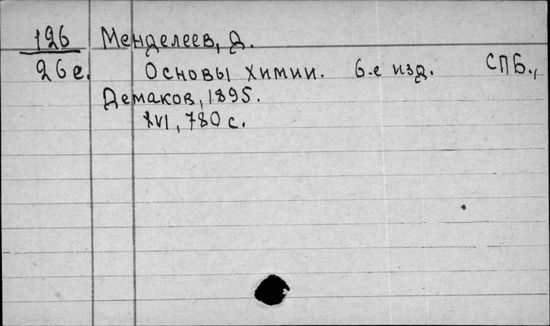 126 Менделеев, Д.
26е. Основы химии. 6-е изд. СПБ.,
Демаков, 1895.
XVI, 780 с.